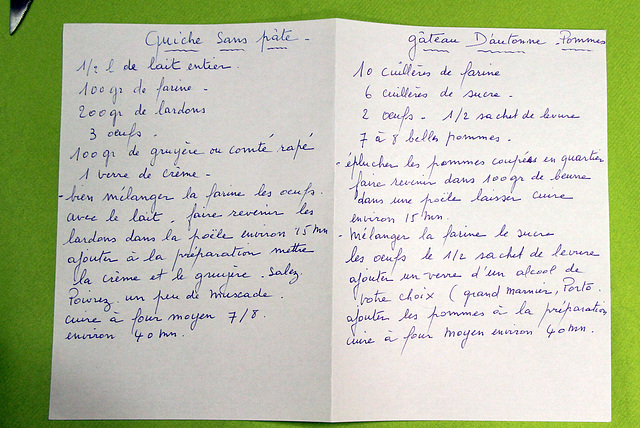 Quiche Sans pâte -
1/2 l de lait entier.
100 gr de farine -
200 gr de lardons
3 oeufs.
100 gr de gruyère ou comté rapé
1 verre de crème -
- bien mélanger la farine les oeufs.
avec le lait, faire revenir les
lardons dans la poële environ 15 mn
ajouter à la préparation mettre
la crème et le gruyère. Salez.
Poivrez. un peu de muscade.
cuire à four moyen 7/8.
environ 40 mn.
gâteau D'automne - Pommes
10 cuillères de farine
6 cuillères de sucre -
2 oeufs - 1/2 sachet de levure
7 à 8 belles pommes -
- éplucher les pommes coupées en quartier
faire revenir dans 100 gr de beurre
dans une poële laisser cuire
environ 15 mn.
- Mélanger la farine le sucre
les oeufs le 1/2 sachet de levure
ajouter un verre d'un alcool de
votre choix ( grand marnier, Porto.
ajouter les pommes à la préparation
cuire à four moyen environ 40 mn.